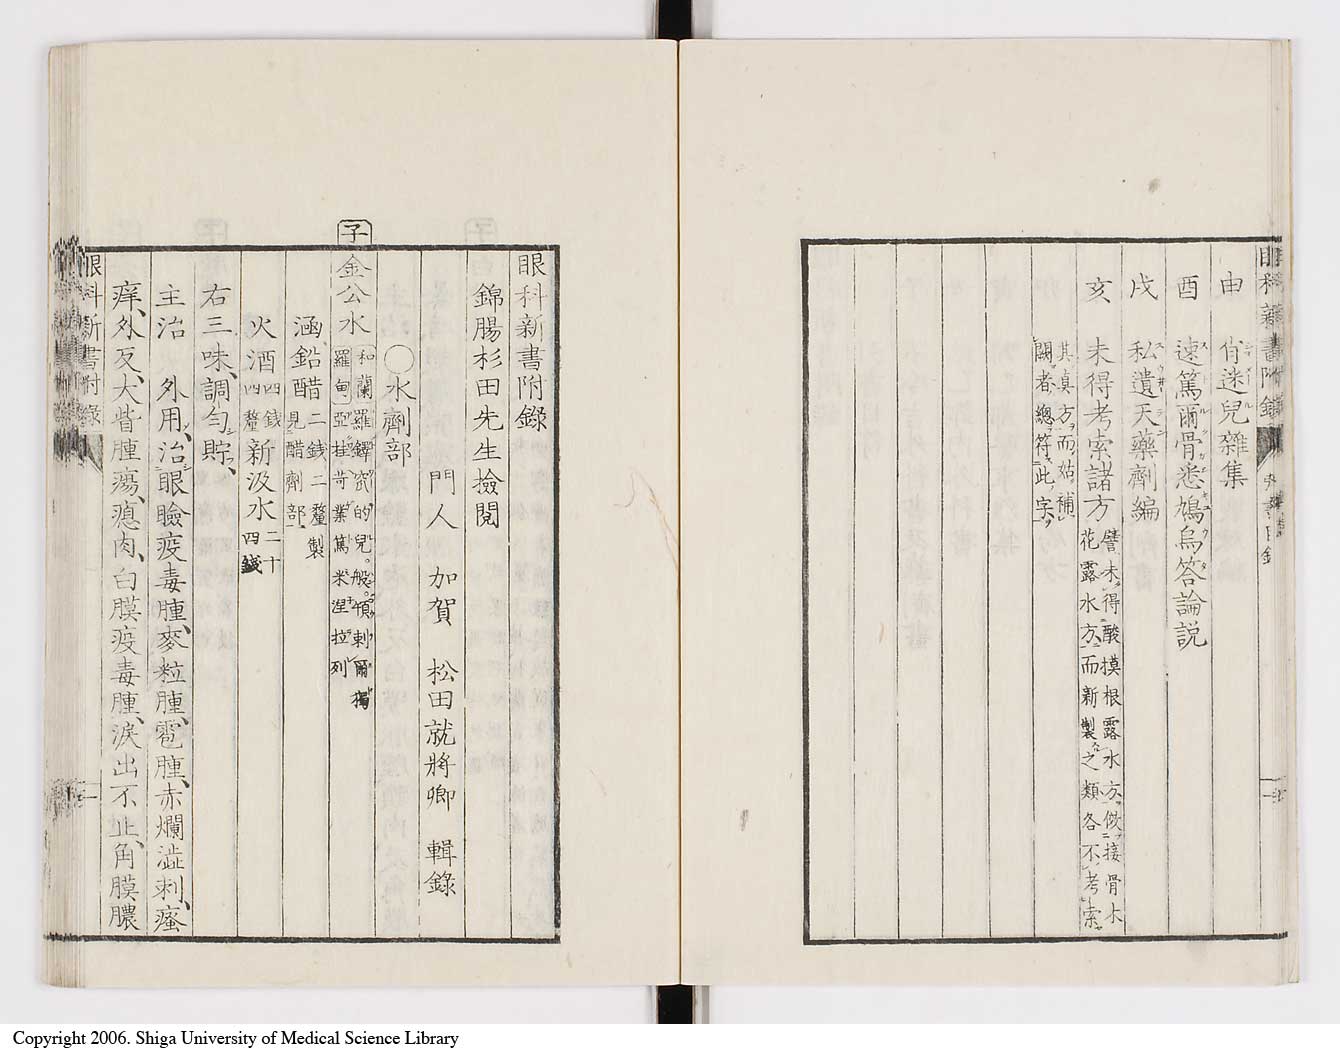 申 佾迷兒雜集
酉 速篤爾骨悉鳩烏答論説
戌 私遺天藥劑編
亥 未得考索諸方 譬未得酸摸根露水方倣接骨木
花露水方而新製之類各不考索
其真方而姑補
闕者總符此字
眼科新書附錄
眼科新書附錄
錦腸杉田先生撿閲
門人 加賀 松田就將卿 輯錄
○水劑部
子 金公水 和蘭羅鐸窊的兒般頎剌爾獨
羅甸亞桂苛業篤米涅拉列
涵鉛醋 二錢二釐製
見醋劑部
火酒 四錢四釐 新汲水 二十四錢
右三味調勻貯
主治 外用治眼瞼疫毒腫麥粒腫雹腫赤爛澁刺瘙
痒外及大眥腫瘍瘜肉白膜疫毒腫淚出不止角膜膿
眼科新書附錄
Copyright 2006. Shiga University of Medical Science Library